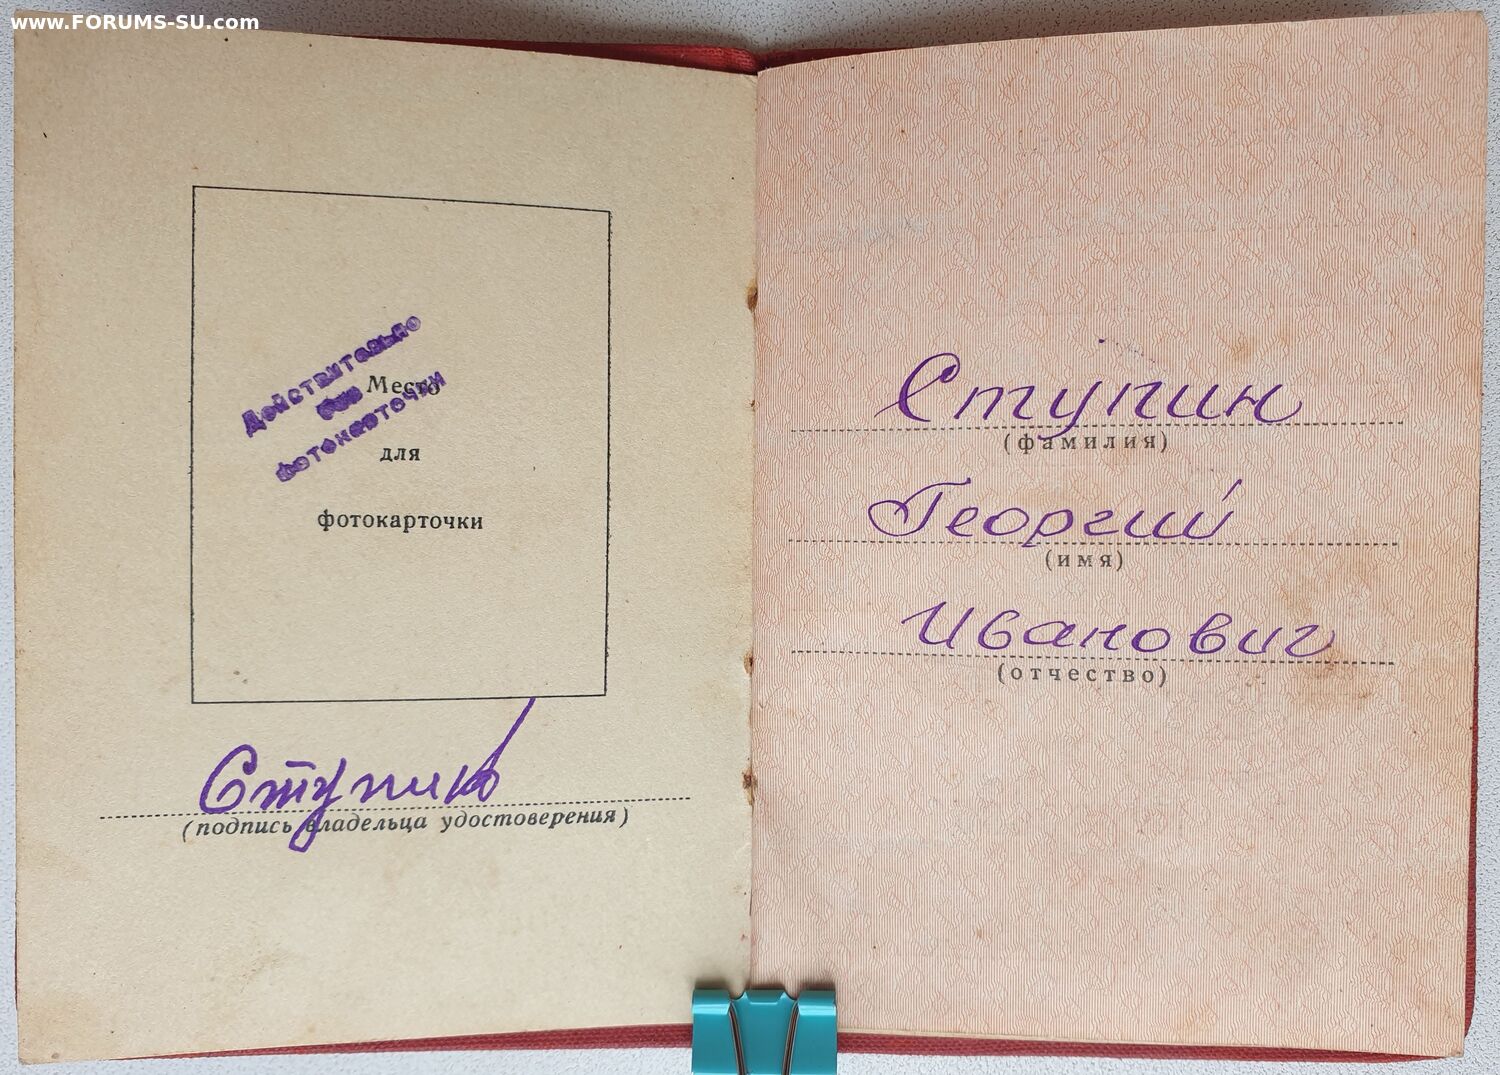 www.FORUMS-SU.com
Действительно
без
фотокарточки
Место
для
фотокарточки
Ступин
(подпись владельца удостоверения)
Ступин
(фамилия)
Георгий
(имя)
Иванович
(отчество)